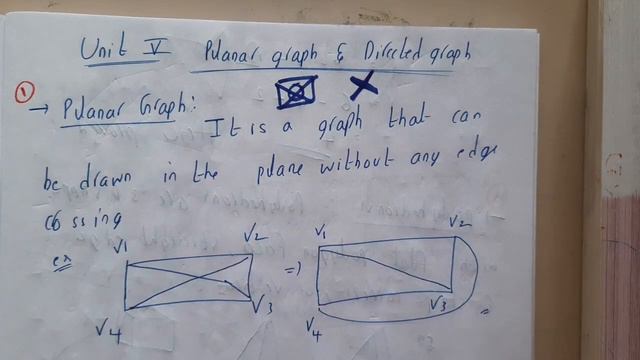 Unit V Pulanar graph & Directed graph
①
→ Pulanar Graph:
It is a graph that can
be drawn in the plane without any edge
cossing
ex V1 V2 V3 V4 => V1 V2 V3 V4